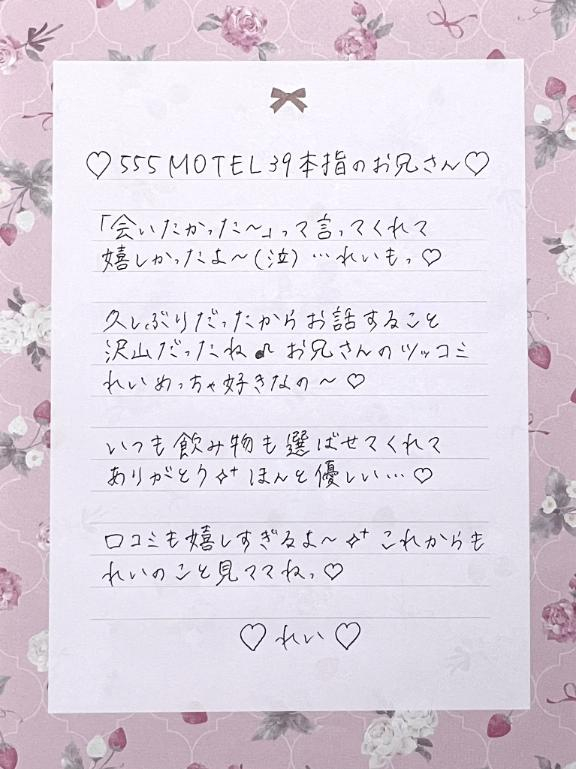 ♡555 MOTEL 39 本指のお兄さん♡
「会いたかった～」って言ってくれて
嬉しかったよ～(泣)…れいもっ♡
久しぶりだったからお話すること
沢山だったね♫ お兄さんのツッコミ
れいめっちゃ好きなの～♡
いつも飲み物も選ばせてくれて
ありがとう✧⁺ ほんと優しい…♡
口コミも嬉しすぎるよ～✧⁺ これからも
れいのこと見ててねっ♡
♡ れい ♡